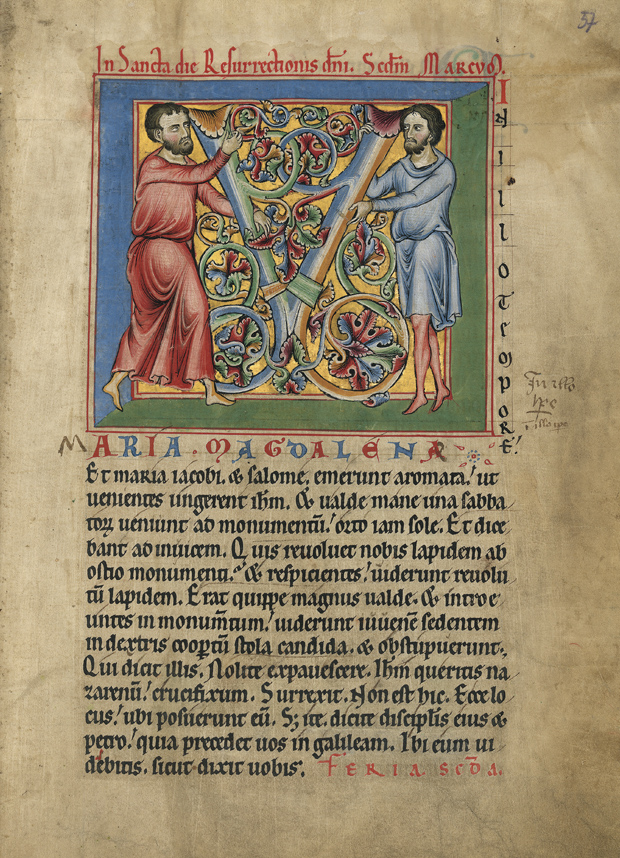 37
In Sancta die Resurrectionis dñi. Scdm Marcvm.
IN ILLO TEMPORE
MARIA . MAGDALENA
Et maria iacobi. & salome. emerunt aromata. ut
uenientes ungerent ihm. & ualde mane una sabba
toꝝ ueniunt ad monumentū. orto iam sole. Et dice
bant ad inuicem. Quis reuoluet nobis lapidem ab
ostio monumenti. & respicientes uiderunt reuolu
tū lapidem. Erat quippe magnus ualde. & introe
untes in monumtum uiderunt iuuenē sedentem
in dextris coopertū stola candida. & obstupuerunt.
Qui dicit illis. Nolite expauescere. Ihm queritis na
zarenū crucifixum. Surrexit. Non est hic. Ecce lo
cus ubi posuerunt eū. Sꝫ ite. dicite discipłis eius &
petro quia precedet uos in galileam. Ibi eum ui
debitis. sicut dixit uobis.
FERIA. SCDA.